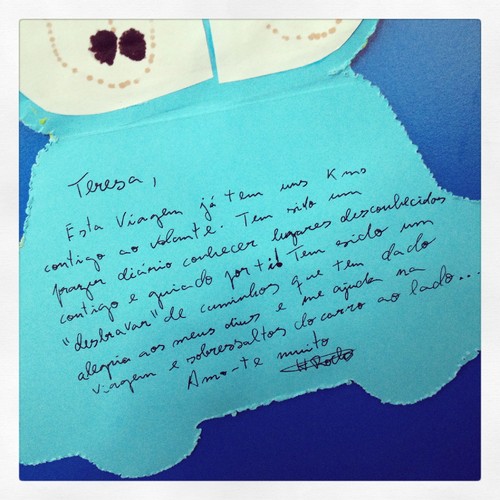 Teresa,
Esta viagem já tem uns Kms
contigo ao volante. Tem sido um
prazer diário conhecer lugares desconhecidos
contigo e guiado por ti! Tem sido um
"desbravar" de caminhos que tem dado
alegria aos meus dias e me ajuda na
viagem e sobressaltos do carro ao lado...
Amo-te muito